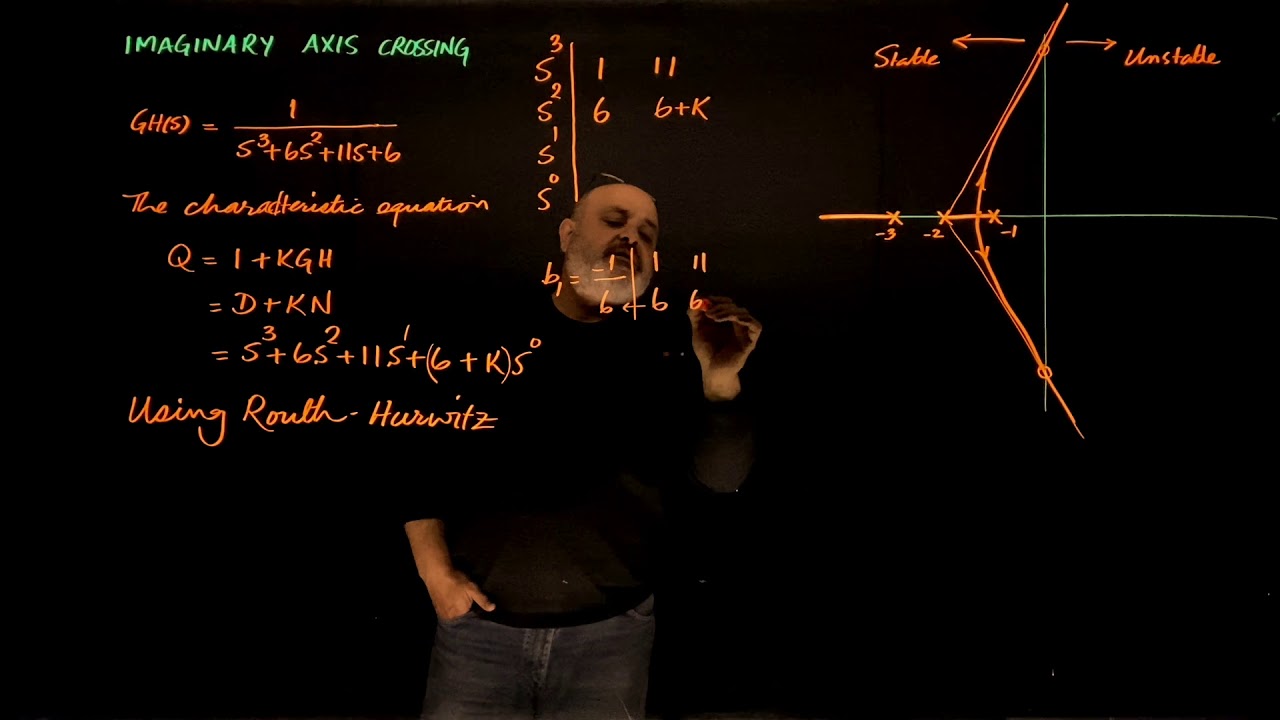 IMAGINARY AXIS CROSSING
GH(S) = 1 / S³+6S²+11S+6
The characteristic equation
Q = 1 + KGH
= D + KN
= S³+6S²+11S¹+(6 + K)S⁰
Using Routh-Hurwitz
S³ | 1 11
S² | 6 6+K
S¹ |
S⁰ |
b₁ = -1/6 | 1 11
6 6
Stable ← → Unstable
-3 -2 -1